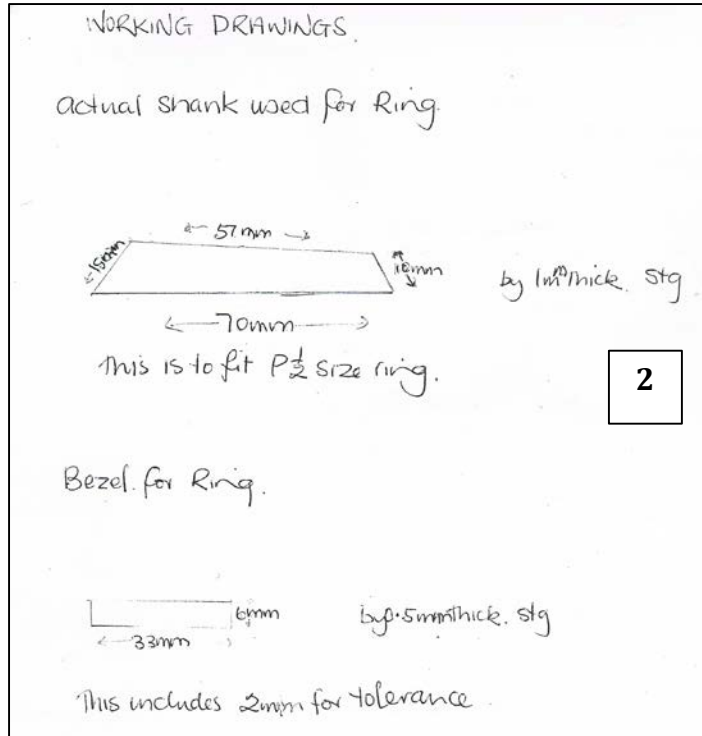 WORKING DRAWINGS.
actual shank used for Ring.
57mm
15mm
10mm
by 1mm thick. stg
70mm
This is to fit P½ size ring.
2
Bezel. for Ring.
6mm
by 0.5mm thick. stg
33mm
This includes 2mm for tolerance